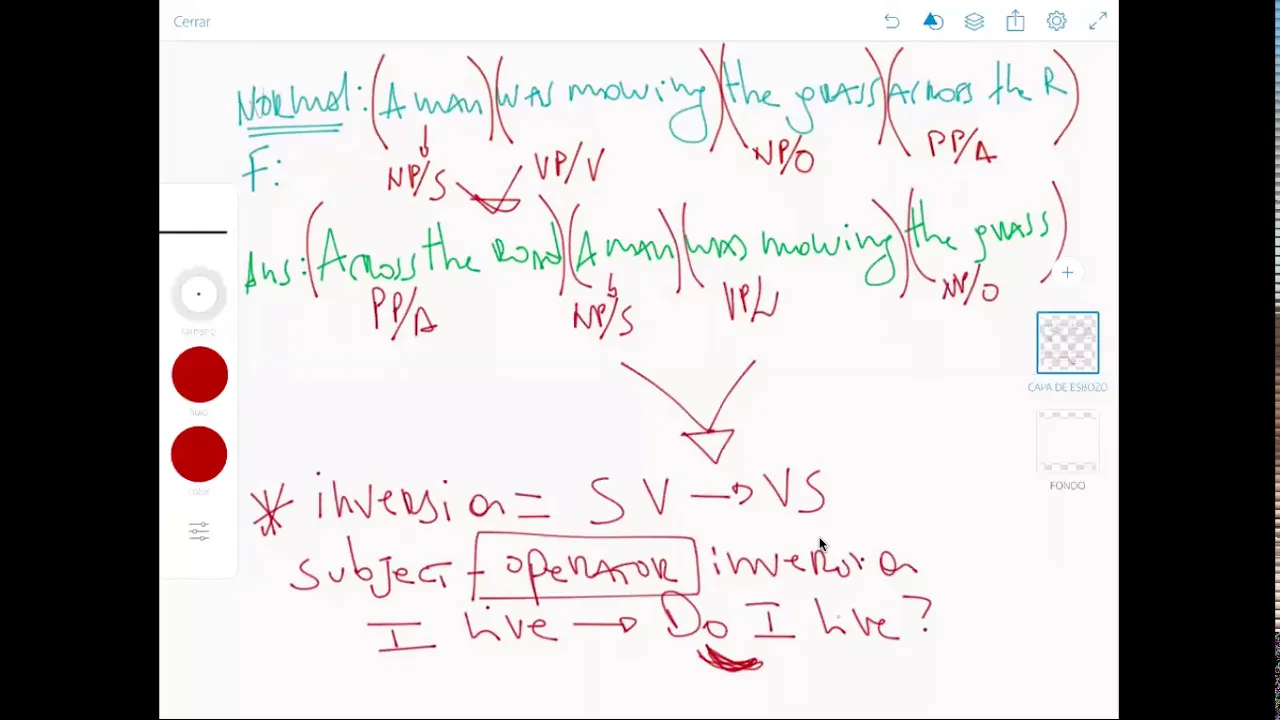 Cerrar
Normal: (A man) (was mowing) (the grass) (Across the R)
F:
NP/S VP/V NP/O PP/A
Ans: (Across the road) (A man) (was mowing) (the grass)
PP/A NP/S VP/V NP/O
CAPA DE ESBOZO
FONDO
* inversion = SV → VS
subject - operator inversion
I live → Do I live?